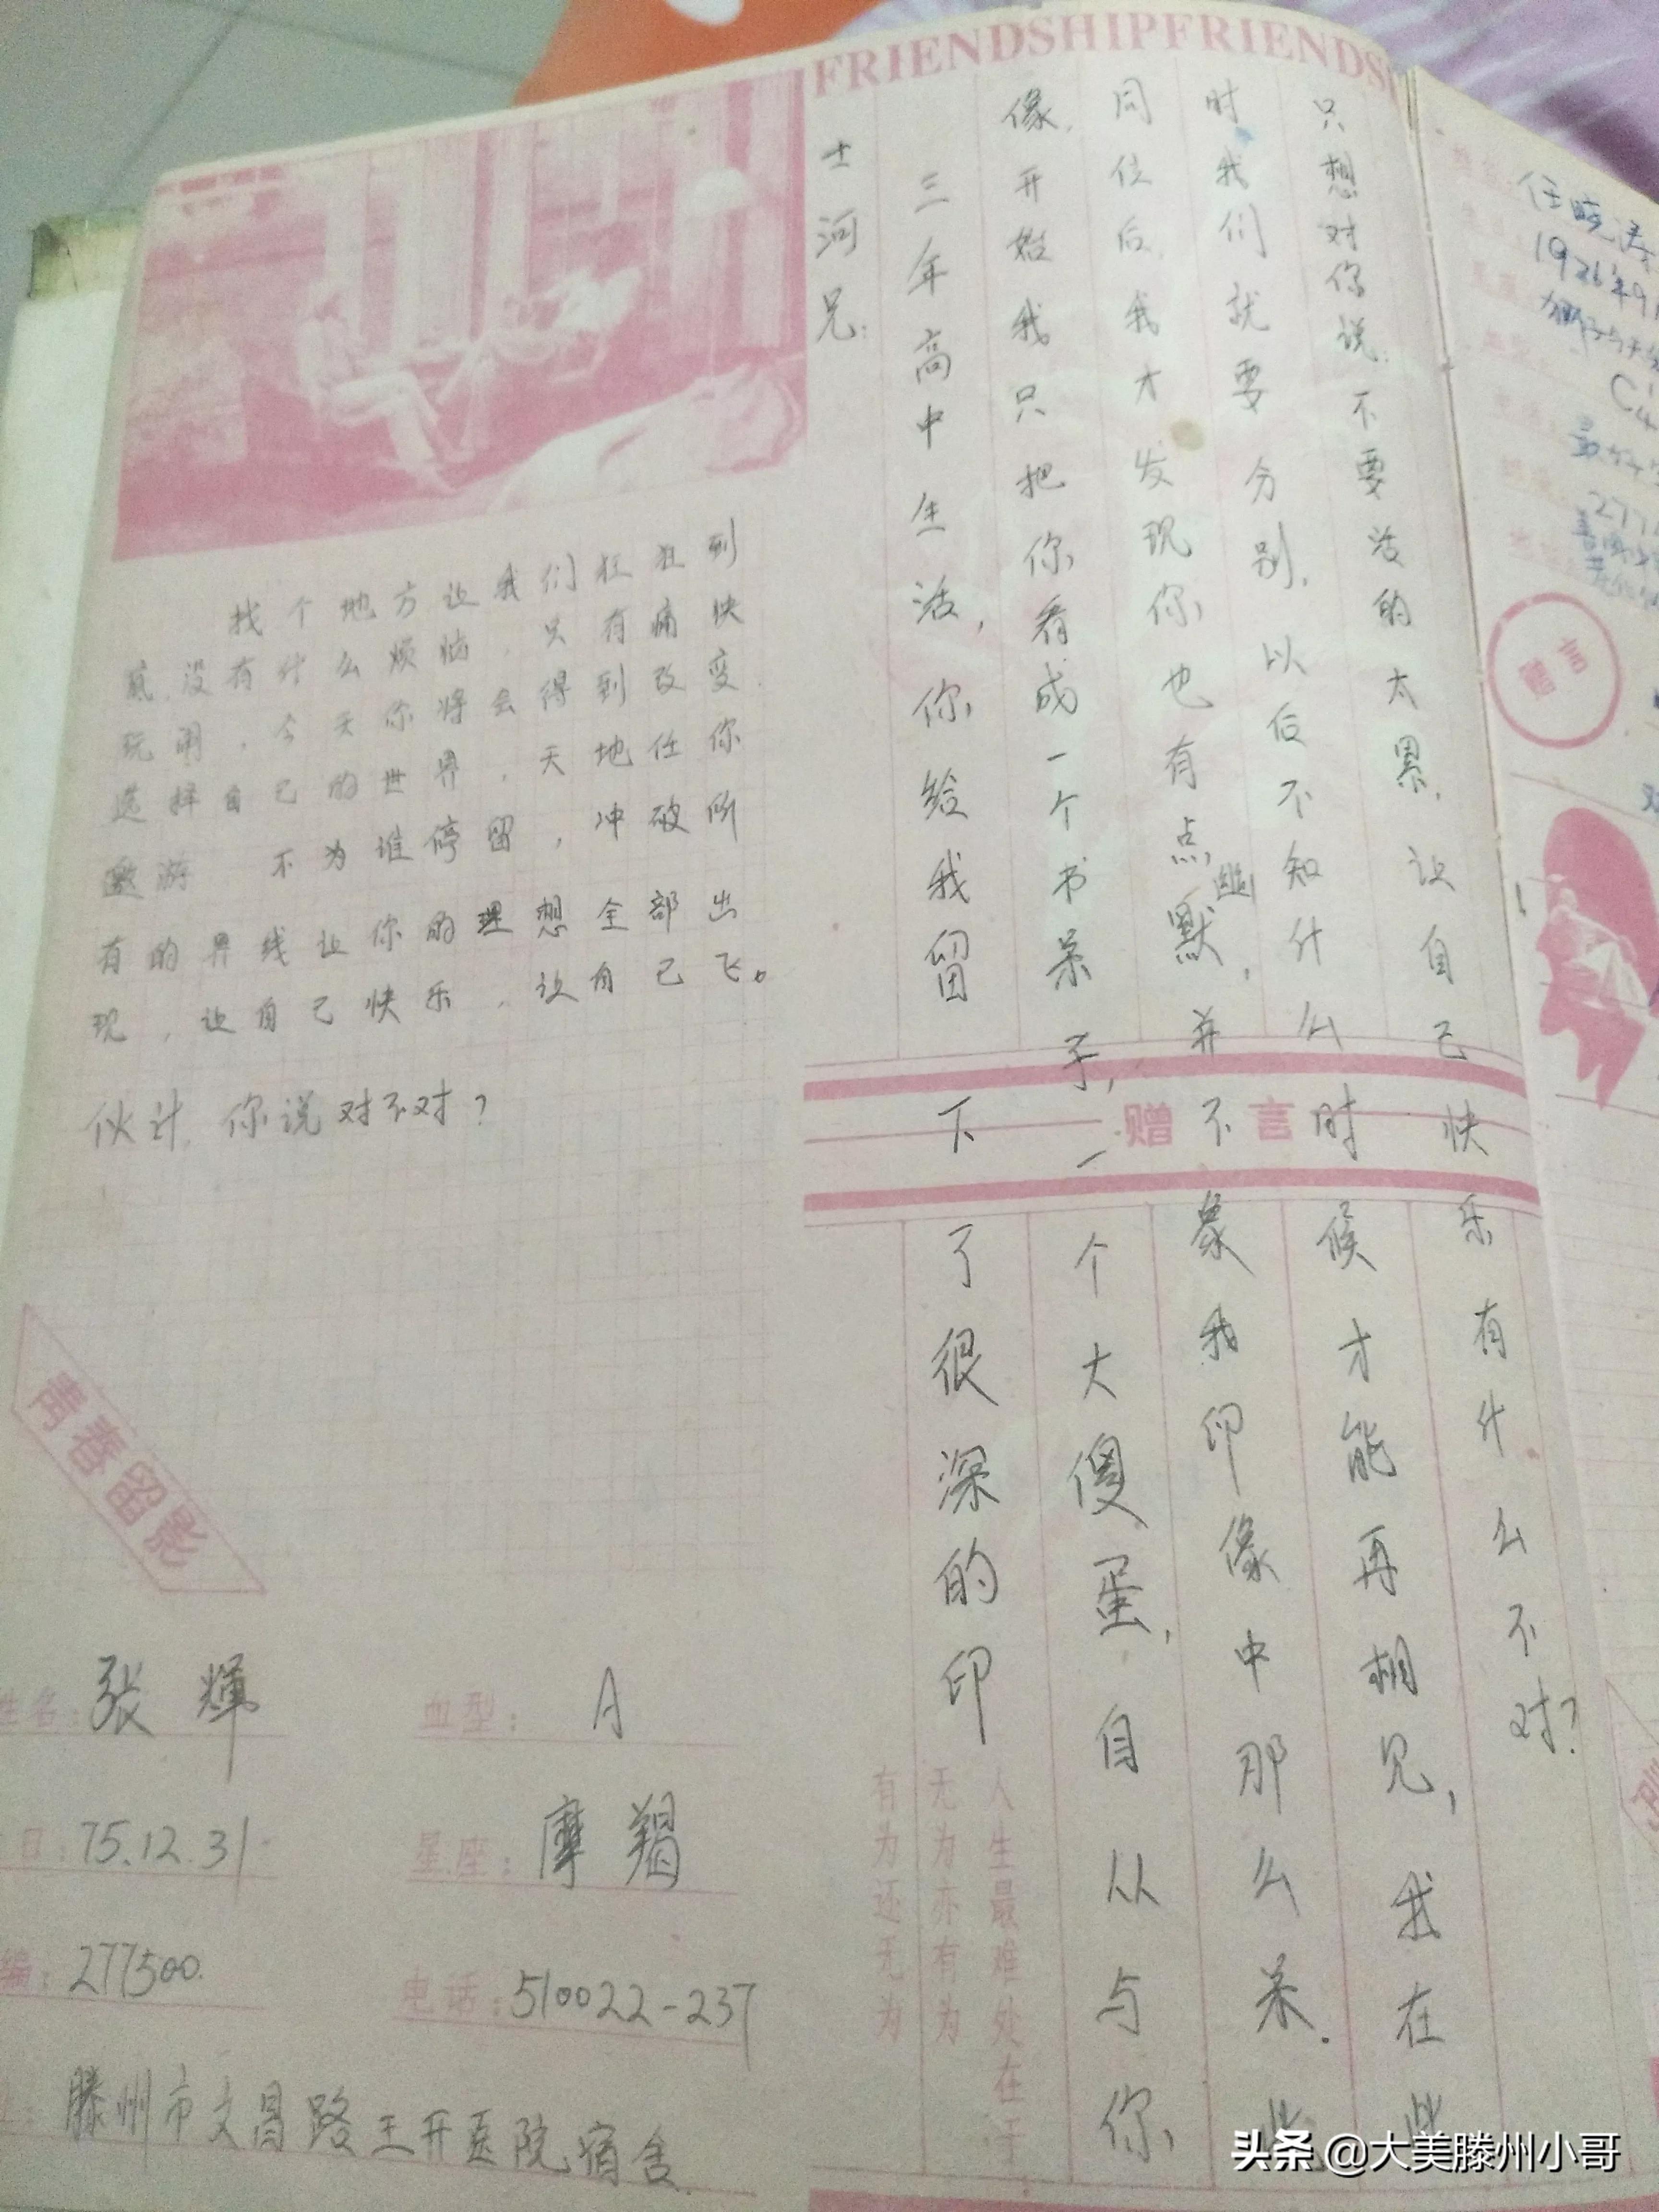 FRIENDSHIPFRIENDS
士河兄：
三年高中生活，你给我留下了很深的印
像，开始我只把你看成一个书呆子，一个大傻蛋，自从与你
同位后，我才发现你也有点幽默，并不象我印像中那么呆．此
时我们就要分别，以后不知什么时候才能再相见，我在此
只想对你说：不要活的太累，让自己快乐有什么不对？
赠言
人生最难处在于
无为亦有为
有为还无为
找个地方让我们狂狂到
底，没有什么烦恼，只有痛快
玩闹，今天你将会得到改变．
选择自己的世界，天地任你
遨游 不为谁停留，冲破所
有的界线让你的理想全部出
现，让自己快乐，让自己飞。
伙计，你说对不对？
青春留影
姓名：张辉
血型：A
日：75.12.31
星座：摩羯
编：277500
电话：510022-237
滕州市文昌路王开医院宿舍
任晓涛
赠言
头条 @大美滕州小哥